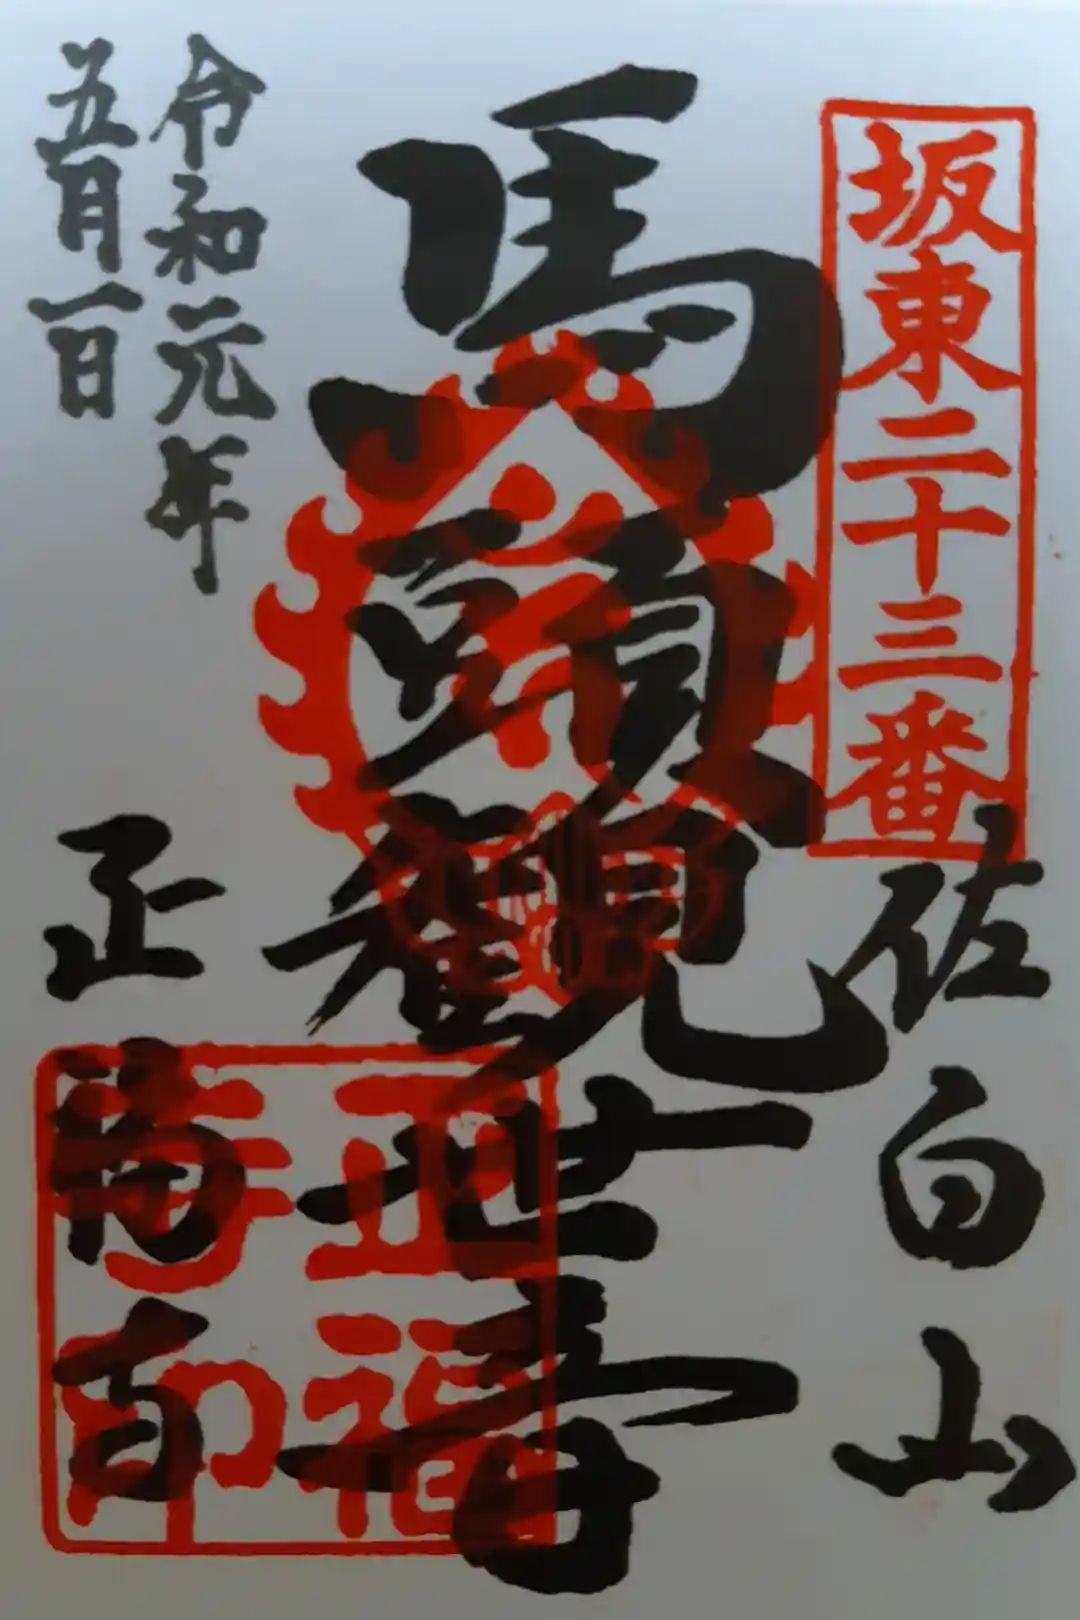 坂東二十三番
佐白山
馬頭觀世音
令和元年
五月一日
正福寺
正福
寺印